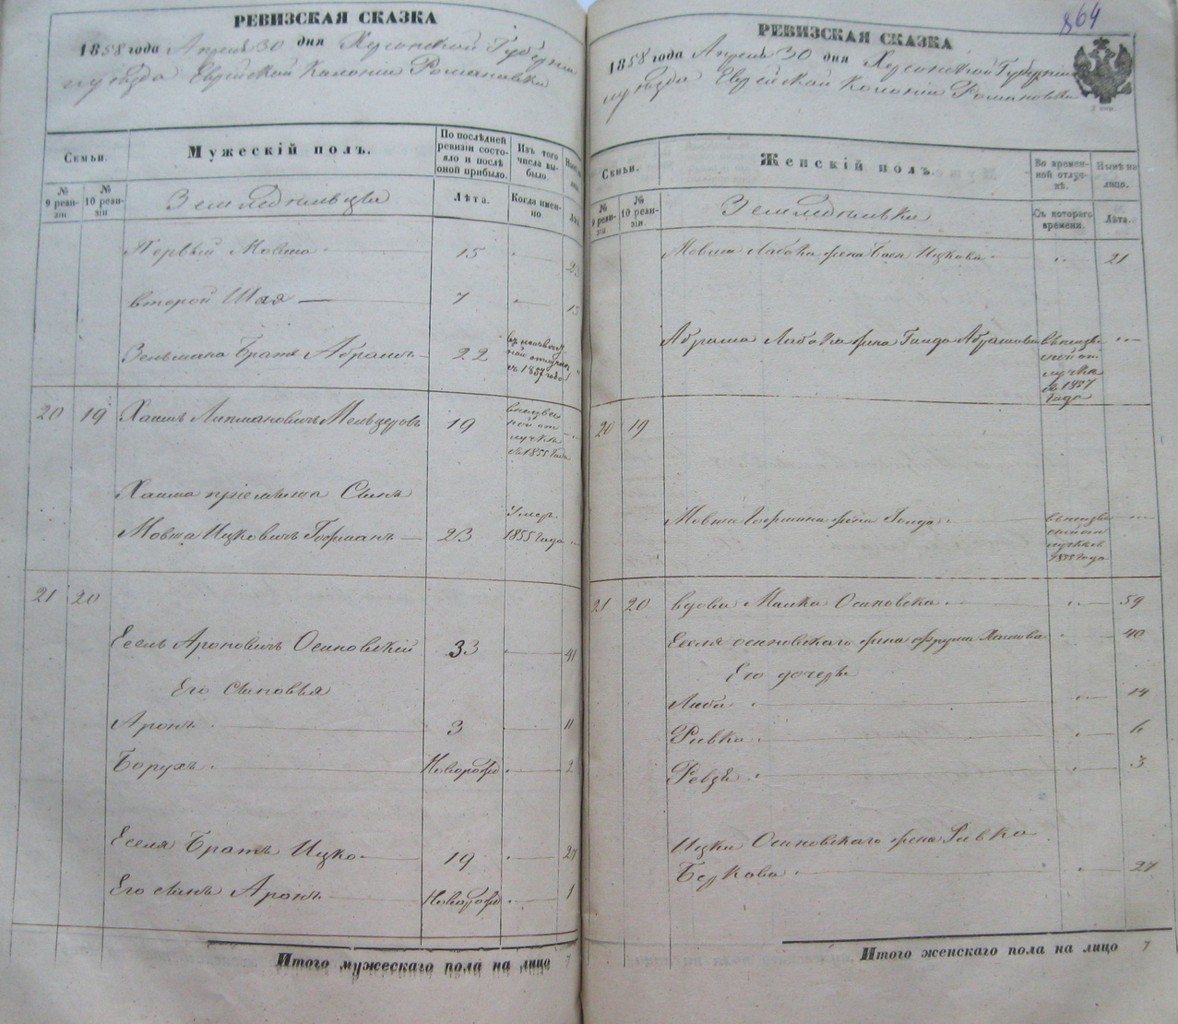 РЕВИЗСКАЯ СКАЗКА
1858 года Апреля 30 дня Херсонской Губерніи
и уѣзда Еврейской Колоніи Романовки
Семьи.
Мужескій полъ.
По послѣдней ревизіи состояло и послѣ оной прибыло.
Изъ того числа выбыло.
№ 9 ревизіи
№ 10 ревизіи
Земледѣльцы
Лѣта.
Когда именно
Первый Мовша 15
второй Шая 7
Зельмана Братъ Абрамъ 22 отлучкѣ съ 1857 года
20 19 Хаимъ Липмановичъ 19 отлучкѣ съ 1855 года
Хаима пріемыша Сына
Умеръ
Мовша Ицковичъ Гофманъ 23 1855 года
21 20
Есель Ароновичъ Осиповскій 33 41
Его Сыновья
Аронъ 3 11
Борухъ Новорожд 2
Еселя Братъ Ицко 19 27
Его сынъ Аронъ Новорожд 1
Итого мужескаго пола на лицо 7
864
РЕВИЗСКАЯ СКАЗКА
1858 года Апреля 30 дня Херсонской Губерніи
и уѣзда Еврейской Колоніи Романовки
Семьи.
Женскій полъ.
Во временной отлучкѣ.
Нынѣ на лицо.
№ 9 ревизіи.
№ 10 ревизіи.
Земледѣлки
Съ котораго времени.
Лѣта.
Мовши жена Бася Ицкова 21
Абрама жена Голда Абрамова отлучкѣ съ 1857 года
20 19
Мовши Гофмана жена Голда 1855 года
21 20 вдова Малка Осиповска 59
Еселя Осиповскаго жена Фрума Хаимова 40
Его дочери
Либи 14
Ривка 6
Рейзи 3
Ицки Осиповскаго жена Ривка
Беркова 27
Итого женскаго пола на лицо 7